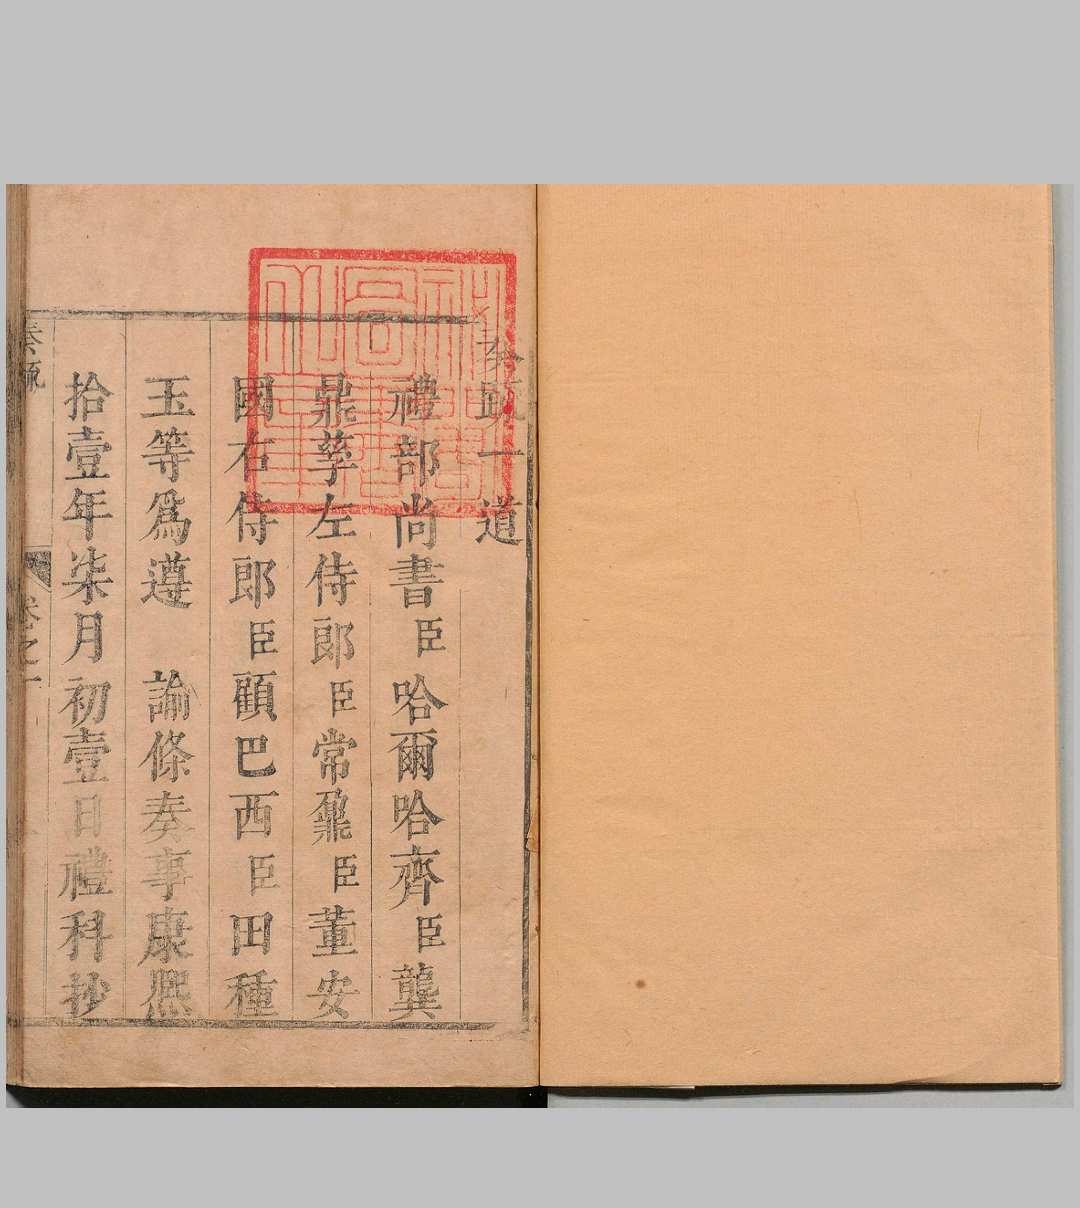 奏疏一道
禮部尚書臣哈爾哈齊臣龔
鼎孳左侍郎臣常鼐臣董安
國右侍郎臣顧巴西臣田種
玉等為遵　諭條奏事康熙
拾壹年柒月初壹日禮科抄
奏疏　卷之一